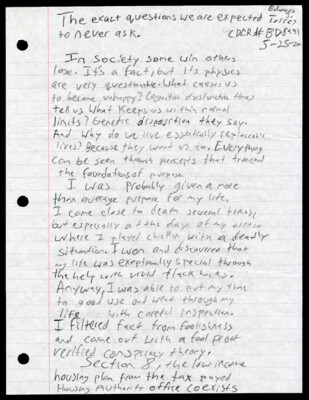 The exact questions we are expected
to never ask.
Edward Torres
CDCR#
5-25-2
In Society some win others
lose. It's a fact, but its physics
are very questionable. What causes us
to become unhappy? Cognitive dysfunction they
tell us. What keeps us within normal
limits? Genetic disposition they say.
And why do we live essentially replaceable
lives? Because they want us to. Everything
can be seen through percepts that transend
the foundations of purpose.
I was probably given a more
than average purpose for my life.
I come close to death several times,
but especially at the day of my arrest
where I played chicken with a deadly
situation. I won and discovered that
my life was exceptionally special through
the help with vivid flack backs.
Anyway, I was able to put my time
to good use and went through my
life with careful inspection.
I filtered fact from foolishness
and came out with a fool proof
verified conspiracy theory.
Section 8, the low income
housing plan from the tax payed
Housing Authority office coexists